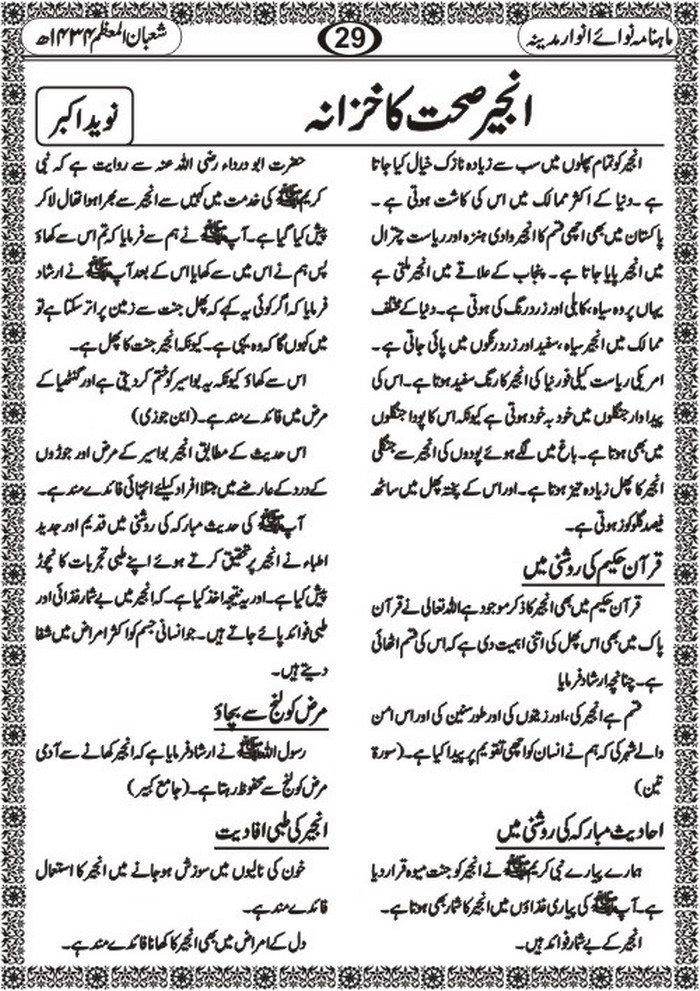 ماہنامہ نوائے انوار مدینہ
29
شعبان المعظم ۱۴۳۴ھ
انجیر صحت کا خزانہ
نوید اکبر
انجیر کو تمام پھلوں میں سب سے زیادہ نازک خیال کیا جاتا
ہے ۔ دنیا کے اکثر ممالک میں اس کی کاشت ہوتی ہے ۔
پاکستان میں بھی اچھی قسم کا انجیر وادی ہنزہ اور ریاست چترال
میں انجیر پایا جاتا ہے ۔ پنجاب کے علاقے میں انجیر ملتی ہے
یہاں پر وہ سیاہ ، کابلی اور زرد رنگ کی ہوتی ہے ۔ دنیا کے مختلف
ممالک میں انجیر سیاہ ، سفید اور زرد رنگوں میں پائی جاتی ہے ۔
امریکی ریاست کیلی فورنیا کی انجیر کا رنگ سفید ہوتا ہے ۔ اس کی
پیداوار جنگلوں میں خود بہ خود ہوتی ہے کیونکہ اس کا پودا جنگلوں
میں بھی ہوتا ہے ۔ باغ میں لگے ہوئے پودوں کی انجیر سے جنگلی
انجیر کا پھل زیادہ تیز ہوتا ہے ۔ اور اس کے پختہ پھل میں ساٹھ
فیصد گلوکوز ہوتی ہے ۔
قرآن حکیم کی روشنی میں
قرآن حکیم میں بھی انجیر کا ذکر موجود ہے اللہ تعالی نے قرآن
پاک میں بھی اس پھل کی اتنی اہمیت دی ہے کہ اس کی قسم اٹھائی
ہے ۔ چنانچہ ارشاد فرمایا
قسم ہے انجیر کی ، اور زیتون کی اور طور سنین کی اور اس امن
والے شہر کی کہ ہم نے انسان کو اچھی تقویم پر پیدا کیا ہے ۔ (سورۃ
تین)
احادیث مبارکہ کی روشنی میں
ہمارے پیارے نبی کریم ﷺ نے انجیر کو جنت میوہ قرار دیا
ہے ۔ آپ ﷺ کی پیاری غذاؤں میں انجیر کا شمار بھی ہوتا ہے ۔
انجیر کے بے شمار فوائد ہیں ۔
حضرت ابو درداء رضی اللہ عنہ سے روایت ہے کہ نبی
کریم ﷺ کی خدمت میں کہیں سے انجیر سے بھرا ہوا تھال لا کر
پیش کیا گیا ہے ۔ آپ ﷺ نے ہم سے فرمایا کہ تم اس سے کھاؤ
پس ہم نے اس میں سے کھایا اس کے بعد آپ ﷺ نے ارشاد
فرمایا کہ اگر کوئی یہ کہے کہ پھل جنت سے زمین پر اتر سکتا ہے تو
میں کہوں گا کہ وہ یہی ہے ۔ کیونکہ انجیر جنت کا پھل ہے ۔
اس سے کھاؤ کیونکہ یہ بواسیر کو ختم کر دیتی ہے اور گنٹھیا کے
مرض میں فائدے مند ہے ۔ (ابن جوزی)
اس حدیث کے مطابق انجیر بواسیر کے مرض اور جوڑوں
کے درد کے عارضے میں مبتلا افراد کیلئے انتہائی فائدے مند ہے ۔
آپ ﷺ کی حدیث مبارکہ کی روشنی میں قدیم اور جدید
اطباء نے انجیر پر تحقیق کرتے ہوئے اپنے طبی تجربات کا نچوڑ
پیش کیا ہے ۔ اور یہ نتیجہ اخذ کیا ہے ۔ کہ انجیر میں بے شمار غذائی اور
طبی فوائد پائے جاتے ہیں ۔ جو انسانی جسم کو اکثر امراض میں شفا
دیتے ہیں ۔
مرض کولنج سے بچاؤ
رسول اللہ ﷺ نے ارشاد فرمایا ہے کہ انجیر کھانے سے آدمی
مرض کولنج سے محفوظ رہتا ہے ۔ (جامع کبیر)
انجیر کی طبی افادیت
خون کی نالیوں میں سوزش ہو جانے میں انجیر کا استعمال
فائدے مند ہے ۔
دل کے امراض میں بھی انجیر کا کھانا فائدے مند ہے ۔